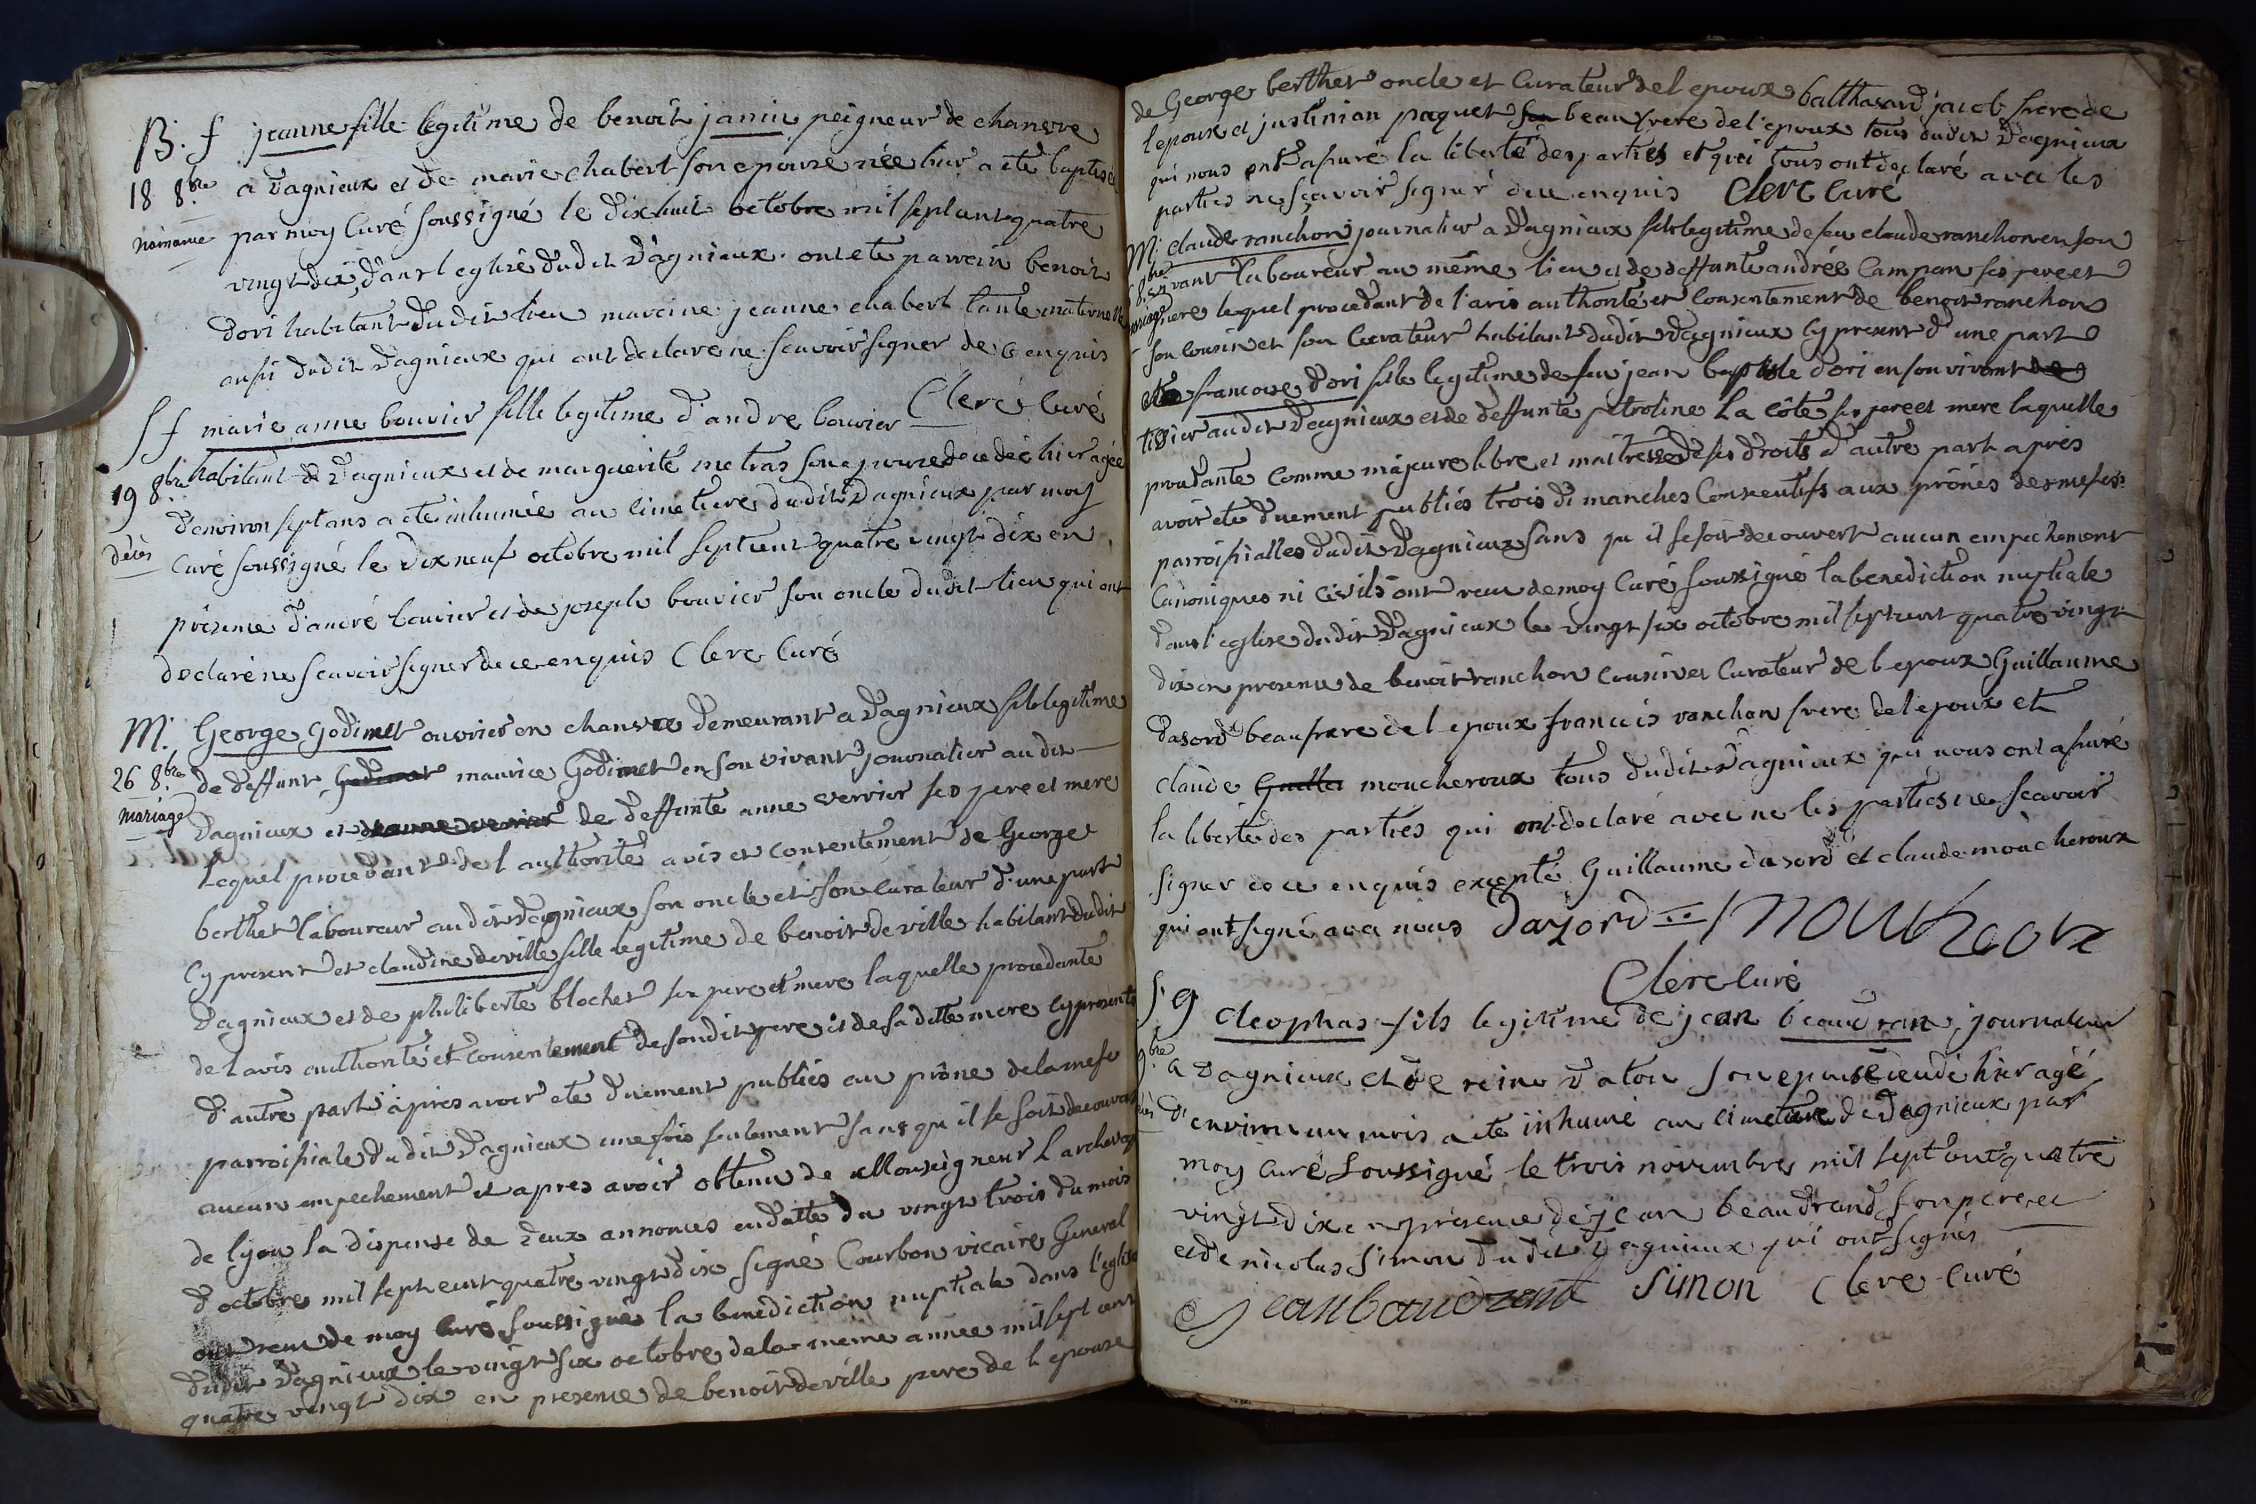 B. f jeanne fille legitime de benoit janin peigneur de chanvre
18 8bre a Dagnieux et de marie chabert son epouse née hier a ete baptisée
naissance par moy Curé soussigné le dix huit octobre mil sept cent quatre
vingt dix, dans l eglise dudit Dagnieux. ont ete parrein benoit
Dori habitant dudit lieu mareine jeanne chabert tante maternelle
aussi dudit Dagnieux qui ont declare ne scavoir signer de ce enquis
Clerc Curé
S f marie anne bouvier fille legitime d'andre bouvier
19 8bre habitant de Dagnieux et de marguerite metras son epouse decedée hier agée
d'environ sept ans a ete inhumée au cimetiere dudit Dagnieux par moy
décès Curé soussigné le dix neuf octobre mil sept cent quatre vingt dix en
présence d'andré bouvier et de joseph bouvier son oncle dudit lieu qui ont
declaré ne scavoir signer de ce enquis Clerc Curé
M. George Godimet ouvrier en chanvre demeurant a Dagnieux fils legitime
26 8bre de deffunt Godimet maurice Godimet en son vivant journalier au dit
mariage Dagnieux et danne verrier de deffunte anne verrier ses pere et mere
lequel procedant de l authorité avis et consentement de George
berthet laboureur au dit Dagnieux son oncle et son curateur d'une part
cy present et claudine deville fille legitime de benoit deville habitant dudit
Dagnieux et de philiberte blochet ses pere et mere laquelle procedante
de l avis authorité et consentement de son dit pere et de sa ditte mere cy presente
d'autre part après avoir ete duement publiés au prône de la messe
parroissiale dudit Dagnieux une fois seulement sans qu il se soit decouvert
aucun empechement et apres avoir obtenu de Monseigneur L archeveque
de lyon la dispense de deux annonces en datte du vingt trois du mois
d'octobre mil sept cent quatre vingt dix signé Courbon vicaire General
ont recu de moy curé soussigné la benediction nuptiale dans l'eglise
dudit Dagnieux le vingt six octobre de la meme année mil sept cent
quatre vingt dix en presence de benoit deville pere de l epouse
de George berthet oncle et Curateur de l epoux balthasard jacob frere de
l epoux et justinian paquet son beau frere de l'epoux tous dudit Dagnieux
qui nous ont assuré la liberté des parties et qui tous ont declaré avec les
parties ne scavoir signer de ce enquis Clerc Curé
M. claude ranchon journalier a Dagnieux fils legitime de feu claude ranchon en son
8bre vivant laboureur au même lieu et de deffunte andrée Campan ses pere et
mariage mere lequel procedant de l'avis authorité et consentement de benoit ranchon
son cousin et son Curateur habitant dudit Dagnieux cy present d'une part
et francoise Dori fille legitime de feu jean baptiste Dori en son vivant de
tissier au dit Dagnieux et de deffunte petroline La côte ses pere et mere laquelle
procedante comme majeure libre et maitresse de ses droits d'autre part après
avoir ete duement publiés trois dimanches Consecutifs aux prônes des messes
parroissialles dudit Dagnieux sans qu il se soit decouvert aucun empechement
Canoniques ni Civils ont recu de moy Curé soussigné la benediction nuptiale
dans l'eglise dudit Dagnieux le vingt six octobre mil sept cent quatre vingt
dix en presence de benoit ranchon cousin et Curateur de l epoux Guillaume
dasord beau frere de l epoux francois ranchon frere de l epoux et
claude Guille moucheroux tous dudit Dagnieux qui nous ont assuré
la liberté des parties qui ont declaré avec ne les parties ne scavoir
signer de ce enquis excepté Guillaume dasord et claude moucheroux
qui ont signé avec nous Dazord moucheoux
Clerc Curé
S. g cleophas fils legitime de jean beaudran journalier
9.bre a Dagnieux et de reine Daton son epouse decedé hier agé
d'environ un mois a ete inhumé au cimetiere de Dagnieux par
moy Curé soussigné le trois novembre mil sept cent quatre
vingt dix en présence de jean beaudrand son pere et
et de nicolas simon dudit Dagnieux qui ont signés
jean baudrand Simon Clerc Curé